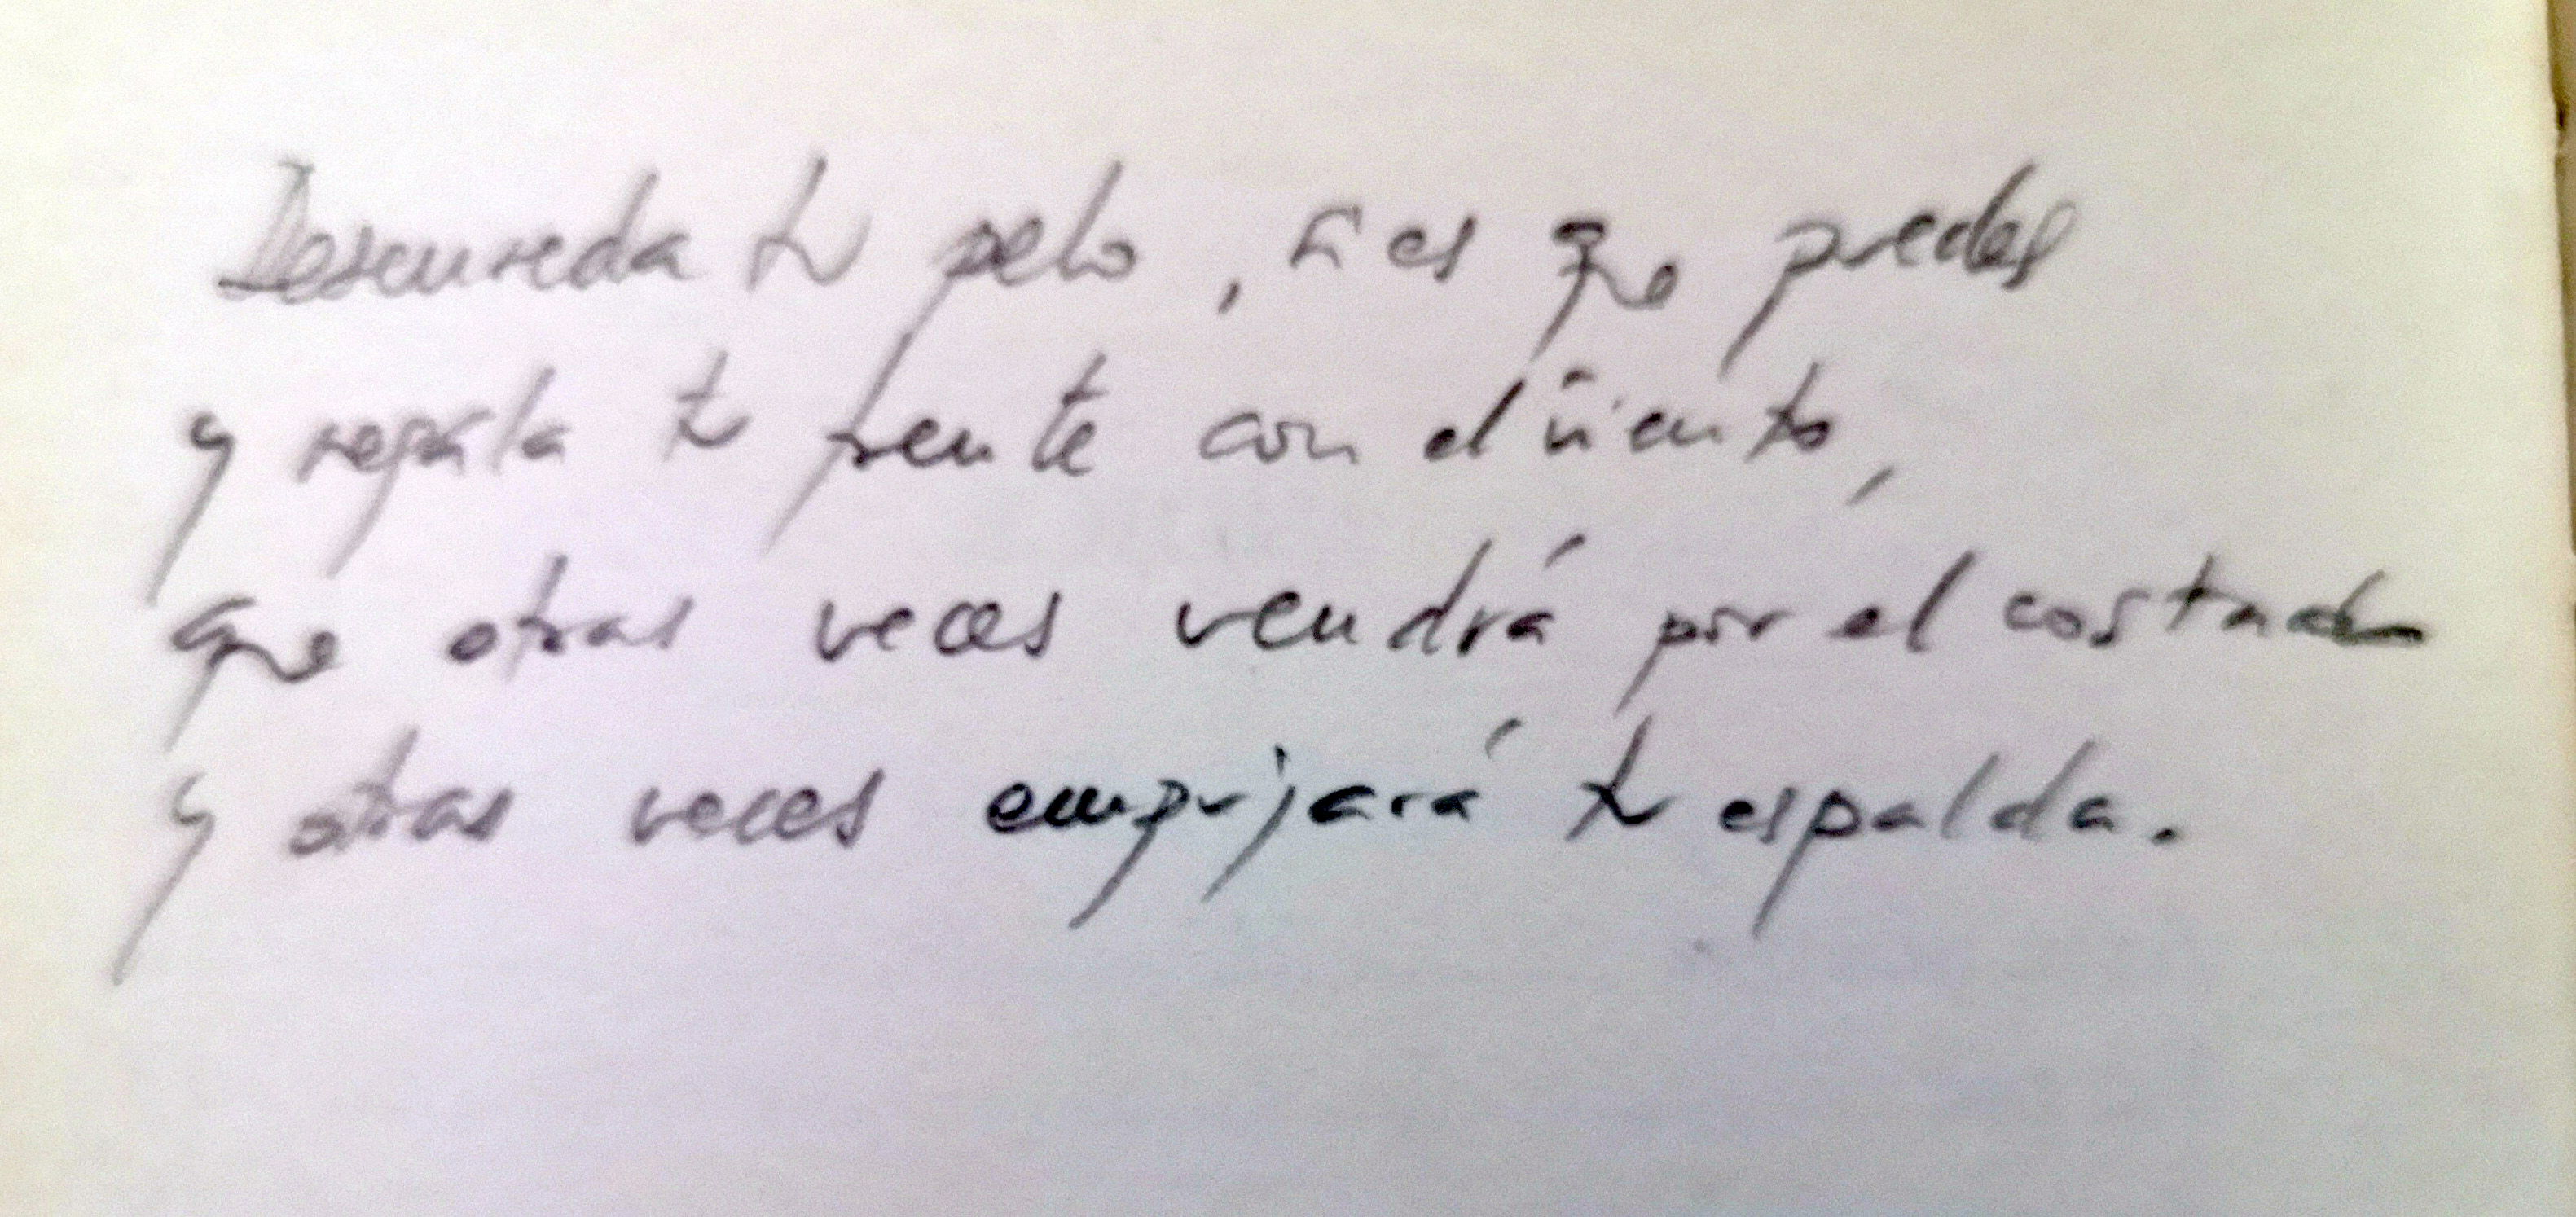 Desenreda tu pelo, si es que puedes
y regala tu frente con el viento,
que otras veces vendrá por el costado
y otras veces empujará tu espalda.